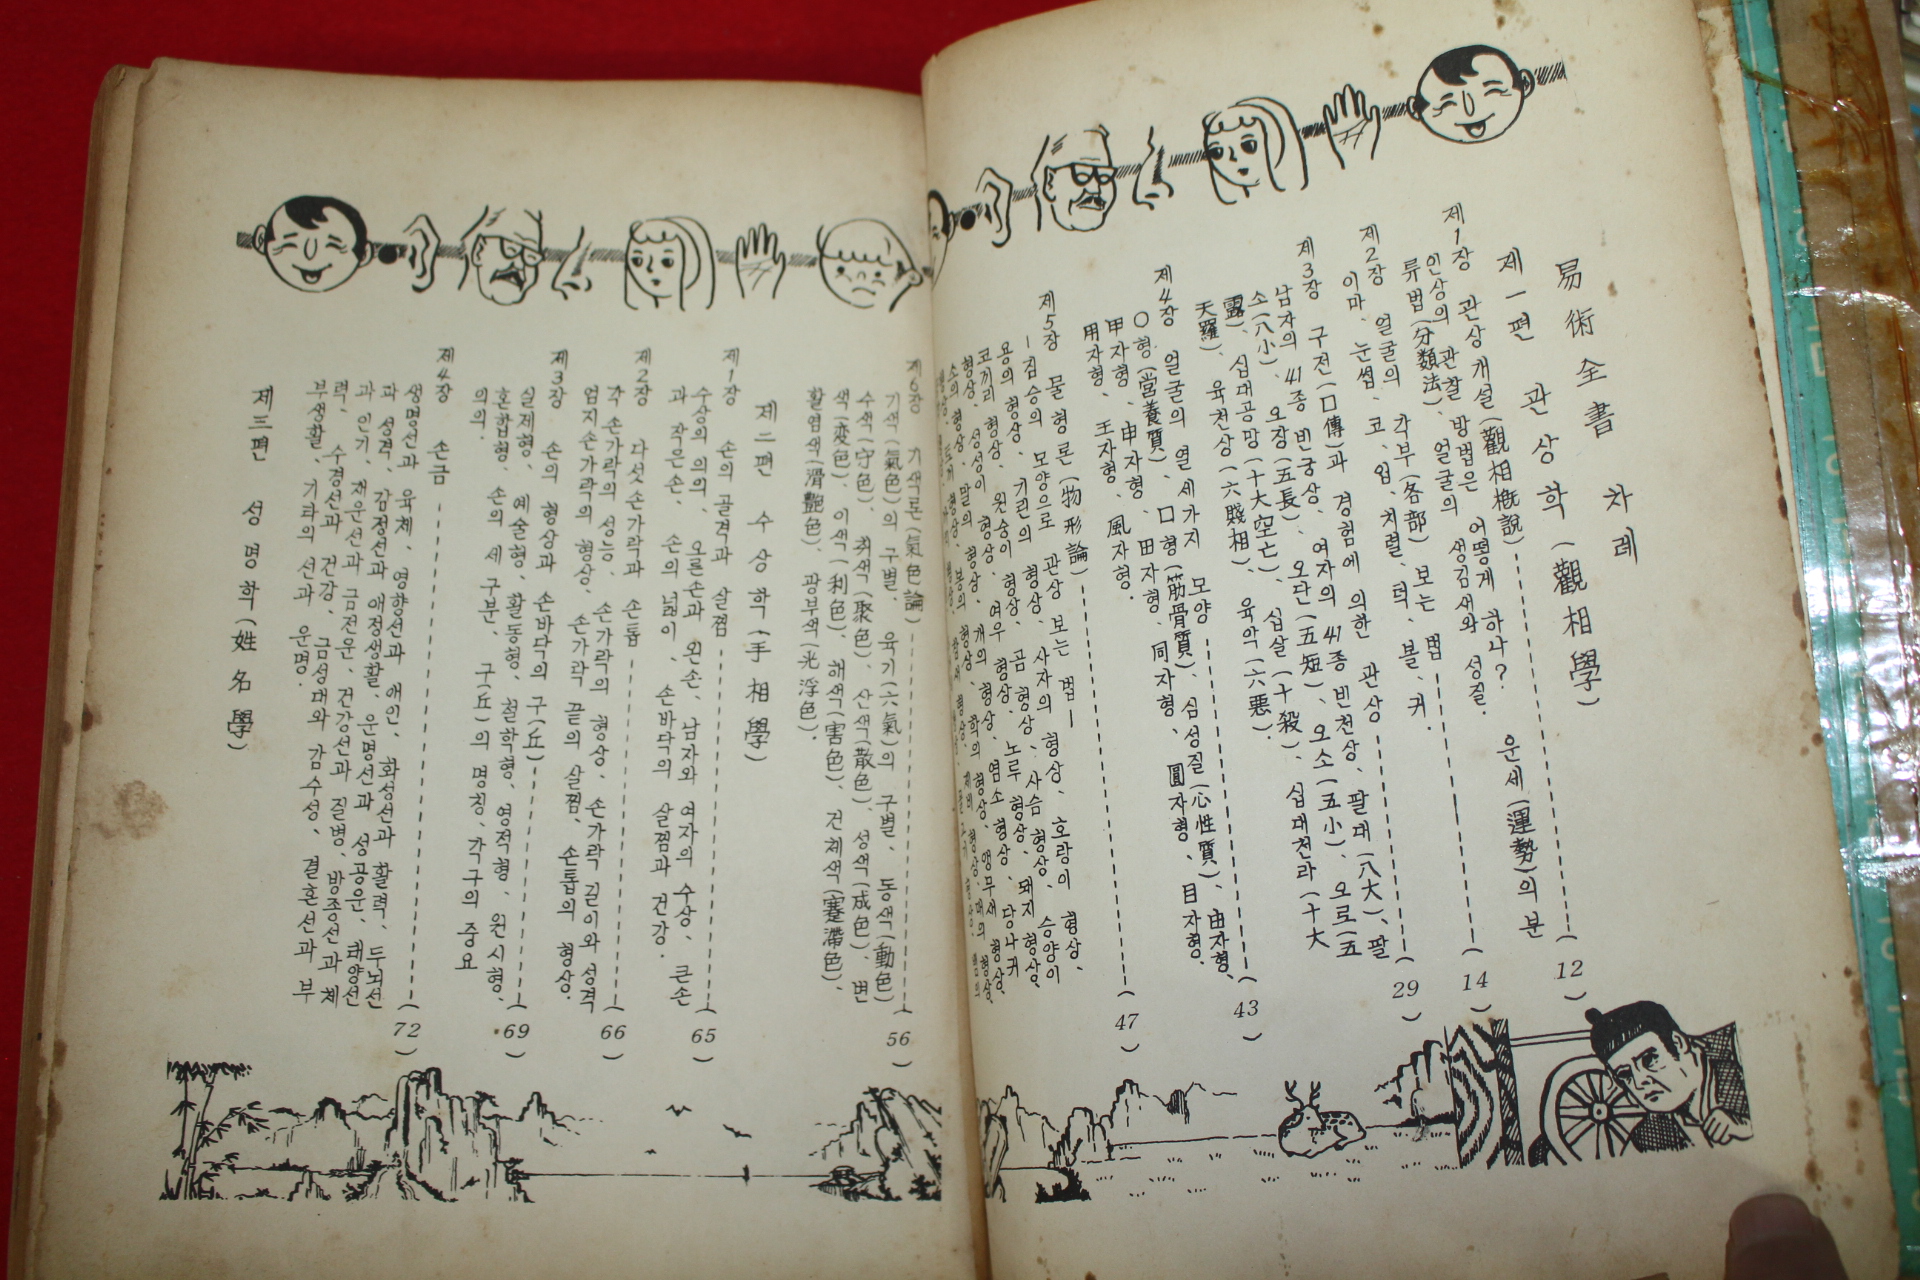 易術全書 차례
제一편 관상학(觀相學)
제1장 관상개설(觀相槪說)
(12)
인상의 관찰 방법은 어떻게 하나? 운세(運勢)의 분
류법(分類法)、얼굴의 생김새와 성질.
(14)
제2장 얼굴의 각부(各部) 보는 법
이마、눈썹、코、입、치렬、턱、볼、귀.
(29)
제3장 구전(口傳)과 경험에 의한 관상
남자의 41종 빈궁상、여자의 41종 빈천상、팔대(八大)、팔
소(八小)、오장(五長)、오단(五短)、오소(五小)、오로(五
露)、십대공망(十大空亡)、십살(十殺)、십대천라(十大
天羅)、육천상(六賤相)、육악(六惡).
(43)
제4장 얼굴의 열세가지 모양
○형(営養質)、口형(筋骨質)、심성질(心性質)、由자형、
甲자형、申자형、田자형、同자형、圓자형、目자형、
用자형、王자형、風자형.
(47)
제5장 물형론(物形論)
—짐승의 모양으로 관상 보는 법—
용의 형상、기린의 형상、사자의 형상、호랑이 형상、
코끼리 형상、원숭이 형상、곰 형상、사슴 형상、승양이
형상、성성이 형상、여우 형상、노루 형상、돼지 형상、
소의 형상、말의 형상、개의 형상、염소 형상、당나귀
제6장 기색론(氣色論)
(56)
기색(氣色)의 구별、육기(六氣)의 구별、동색(動色)
수색(守色)、취색(聚色)、산색(散色)、성색(成色)、변
색(変色)、이색(利色)、해색(害色)、건체색(蹇滯色)、
활염색(滑艷色)、광부색(光浮色).
제二편 수상학(手相學)
제1장 손의 골격과 살찜
(65)
수상의 의의、오른손과 왼손、남자와 여자의 수상、큰손
과 작은손、손의 넓이、손바닥의 살찜과 건강.
제2장 다섯손가락과 손톱
(66)
각 손가락의 성능、손가락의 형상、손가락 길이와 성격
엄지손가락의 형상、손가락 끝의 살찜、손톱의 형상.
제3장 손의 형상과 손바닥의 구(丘)
(69)
실제형、예술형、활동형、철학형、영적형、원시형、
혼합형、손의 세 구분、구(丘)의 명칭、각구의 중요
의의.
제4장 손금
(72)
생명선과 육체、영향선과 애인、화성선과 활력、두뇌선
과 성격、감정선과 애정생활、운명선과 성공운、태양선
과 인기、재운선과 금전운、건강선과 질병、방종선과 체
력、수경선과 건강、금성대와 감수성、결혼선과 부
부생활、기타의 선과 운명.
제三편 성명학(姓名學)